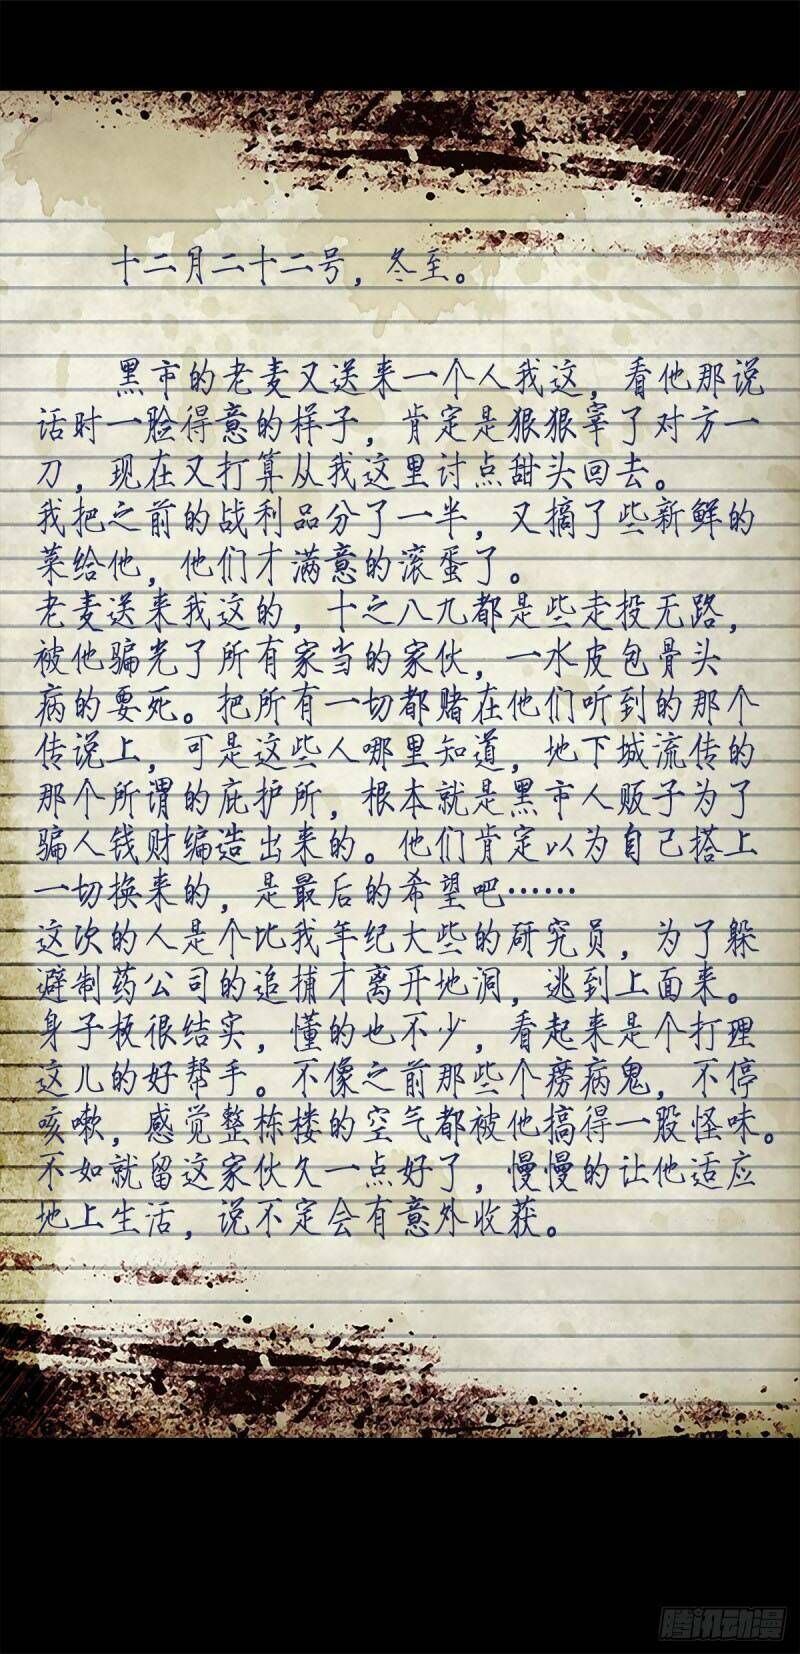 十二月二十二号，冬至。
黑市的老麦又送来一个人我这，看他那说
话时一脸得意的样子，肯定是狠狠宰了对方一
刀，现在又打算从我这里讨点甜头回去。
我把之前的战利品分了一半，又搞了些新鲜的
菜给他，他们才满意的滚蛋了。
老麦送来我这的，十之八九都是些走投无路，
被他骗光了所有家当的家伙，一水皮包骨头
病的要死。把所有一切都赌在他们听到的那个
传说上，可是这些人哪里知道，地下城流传的
那个所谓的庇护所，根本就是黑市人贩子为了
骗人钱财编造出来的。他们肯定以为自己搭上
一切换来的，是最后的希望吧……
这次的人是个比我年纪大些的研究员，为了躲
避制药公司的追捕才离开地洞，逃到上面来。
身子板很结实，懂的也不少，看起来是个打理
这儿的好帮手。不像之前那些个痨病鬼，不停
咳嗽，感觉整栋楼的空气都被他搞得一股怪味。
不如就留这家伙久一点好了，慢慢的让他适应
地上生活，说不定会有意外收获。
腾讯动漫